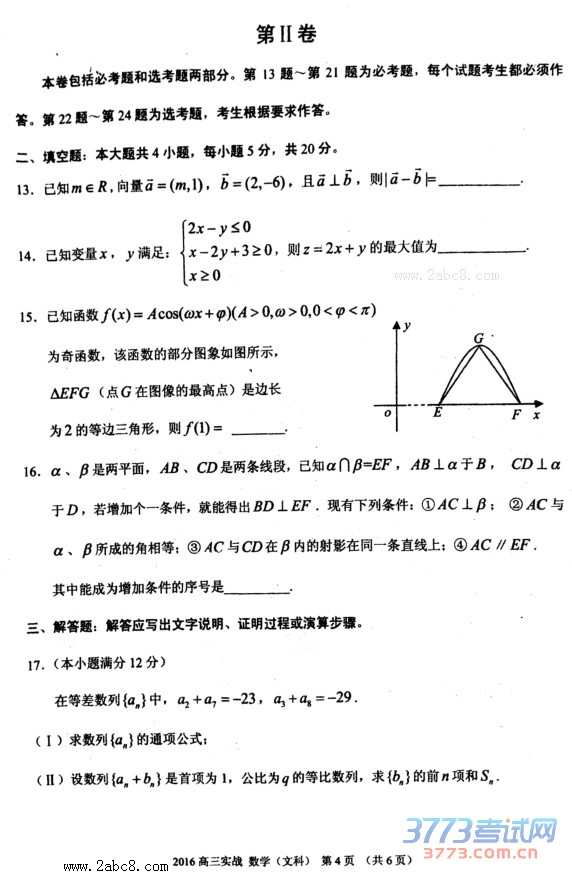 第Ⅱ卷
本卷包括必考题和选考题两部分。第 13 题～第 21 题为必考题，每个试题考生都必须作
答。第 22 题～第 24 题为选考题，考生根据要求作答。
二、填空题：本大题共 4 小题，每小题 5 分，共 20 分。
13．已知 m∈R，向量 a⃗ = (m,1)，b⃗ = (2,−6)，且 a⃗ ⊥ b⃗，则|a⃗ − b⃗|=________.
14．已知变量 x，y 满足：{2x−y≤0
x−2y+3≥0，则 z = 2x + y 的最大值为________.
x≥0
www.2abc8.com
15．已知函数 f(x) = Acos(ωx+φ)(A>0,ω>0,0<φ<π)
为奇函数，该函数的部分图象如图所示，
ΔEFG（点 G 在图像的最高点）是边长
为 2 的等边三角形，则 f(1) = ________.
y
G
o E F x
16．α、β 是两平面，AB、CD 是两条线段，已知 α∩β=EF，AB⊥α 于 B， CD⊥α
于 D，若增加个一条件，就能得出 BD⊥EF．现有下列条件：①AC⊥β；②AC 与
α、β 所成的角相等；③AC 与 CD 在 β 内的射影在同一条直线上；④AC // EF．
其中能成为增加条件的序号是________.
三、解答题：解答应写出文字说明、证明过程或演算步骤。
17．（本小题满分 12 分）
在等差数列{aₙ}中，a₂ + a₇ = −23，a₃ + a₈ = −29．
（Ⅰ）求数列{aₙ}的通项公式；
（Ⅱ）设数列{aₙ + bₙ}是首项为 1，公比为 q 的等比数列，求{bₙ}的前 n 项和 Sₙ．
3773考试网
3773.com.cn
www.2abc8.com
2016 高三实战 数学（文科） 第 4 页 （共 6 页）